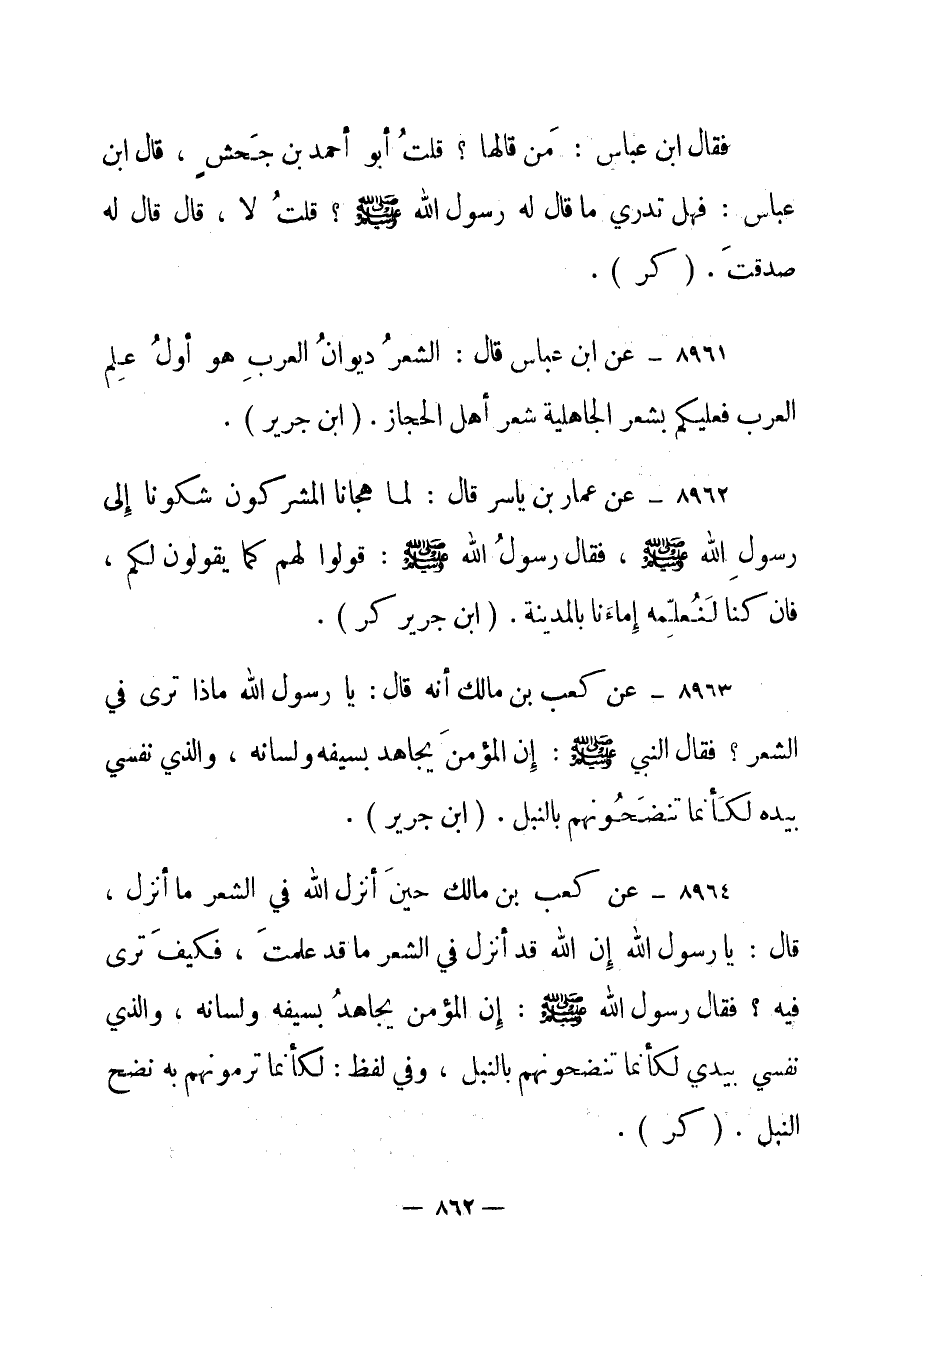 فقال ابن عباس : مَن قالها ؟ قلتُ أبو أحمد بن جَحشٍ ، قال ابن
عباس : فهل تدري ما قال له رسول الله ﷺ ؟ قلتُ لا ، قال قال له
صدقتَ . ( كر ) .
٨٩٦١ ـ عن ابن عباس قال : الشعرُ ديوانُ العربِ هو أولُ عِلم
العرب فعليكم بشعر الجاهلية شعر أهل الحجاز . ( ابن جرير ) .
٨٩٦٢ ـ عن عمار بن ياسر قال : لما هجانا المشركون شكونا إلى
رسولِ الله ﷺ ، فقال رسولُ الله ﷺ : قولوا لهم كما يقولون لكم ،
فان كنا لَنُعلِّمه إماءَنا بالمدينة . ( ابن جرير كر ) .
٨٩٦٣ ـ عن كعب بن مالك أنه قال : يا رسول الله ماذا ترى في
الشعر ؟ فقال النبي ﷺ : إن المؤمنَ يجاهد بسيفه ولسانه ، والذي نفسي
بيده لكَأنما تنضَحُونهم بالنبل . ( ابن جرير ) .
٨٩٦٤ ـ عن كعب بن مالك حينَ أنزل الله في الشعر ما أنزل ،
قال : يا رسول الله إن الله قد أنزل في الشعر ما قد علمتَ ، فكيفَ ترى
فيه ؟ فقال رسول الله ﷺ : إن المؤمن يجاهدُ بسيفه ولسانه ، والذي
نفسي بيدي لكأنما تنضحونهم بالنبل ، وفي لفظ : لكأنما ترمونهم به نضح
النبل . ( كر ) .
— ٨٦٢ —